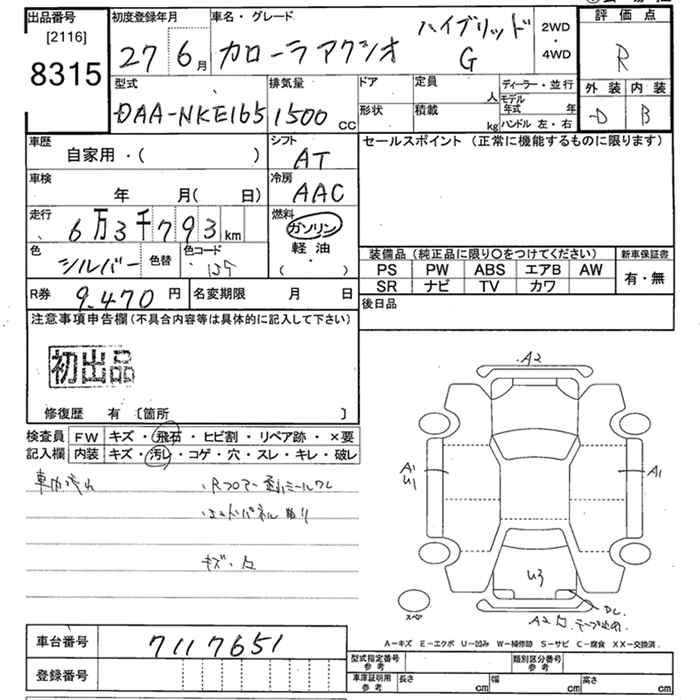 出品番号
[2116]
8315
初度登録年月
27 6月
車名・グレード
カローラアクシオ ハイブリッド G
2WD
・
4WD
評価点
R
外装 内装
D B
型式
DAA-NKE165
排気量
1500 cc
ドア
形状
定員 人
積載 kg
ディーラー・並行
モデル年式 年
ハンドル 左・右
車歴
自家用・( )
シフト
AT
セールスポイント (正常に機能するものに限ります)
車検
年 月(日)
冷房
AAC
走行
6万3千793km
燃料
ガソリン
軽油
( )
色
シルバー
色替
色コード
装備品 (純正品に限り〇をつけてください)
新車保証書
PS PW ABS エアB AW
有・無
SR ナビ TV カワ
R券 9.470円
名変期限 月 日
後日品
注意事項申告欄 (不具合内容等は具体的に記入して下さい)
初出品
修復歴 有 [箇所 ]
検査員 FW キズ・飛石・ヒビ割・リペア跡・×要
記入欄 内装 キズ・汚レ・コゲ・穴・スレ・キレ・破レ
キズ・
A2
A1
U1
A1
U3
スペア
A2
A-キズ E-エクボ U-凹み W-補修跡 S-サビ C-腐食 XX-交換済
車台番号 7117651
登録番号
型式指定番号 参考
類別区分番号 参考
車庫証明用 参考 長さ cm 幅 cm 高さ cm